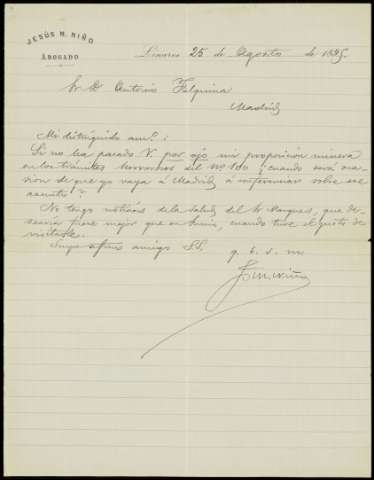 JESÚS M. NIÑO
ABOGADO
Linares 25 de Agosto de 1895.
Sr. D. Antonio
Madrid
Mi distinguido am.º:
Si no ha pasado V. por ojo mi proposición minera
en los trámites del nº 100 ¿cuando será oca-
sion de que yo vaya á Madrid á informar sobre ese
asunto?
No tengo noticias de la salud del Sr Marques, que de-
searia fuese mejor que en Junio, cuando tuve el gusto de
visitarle.
Suyo afmo amigo S.S. q. b. s. m.